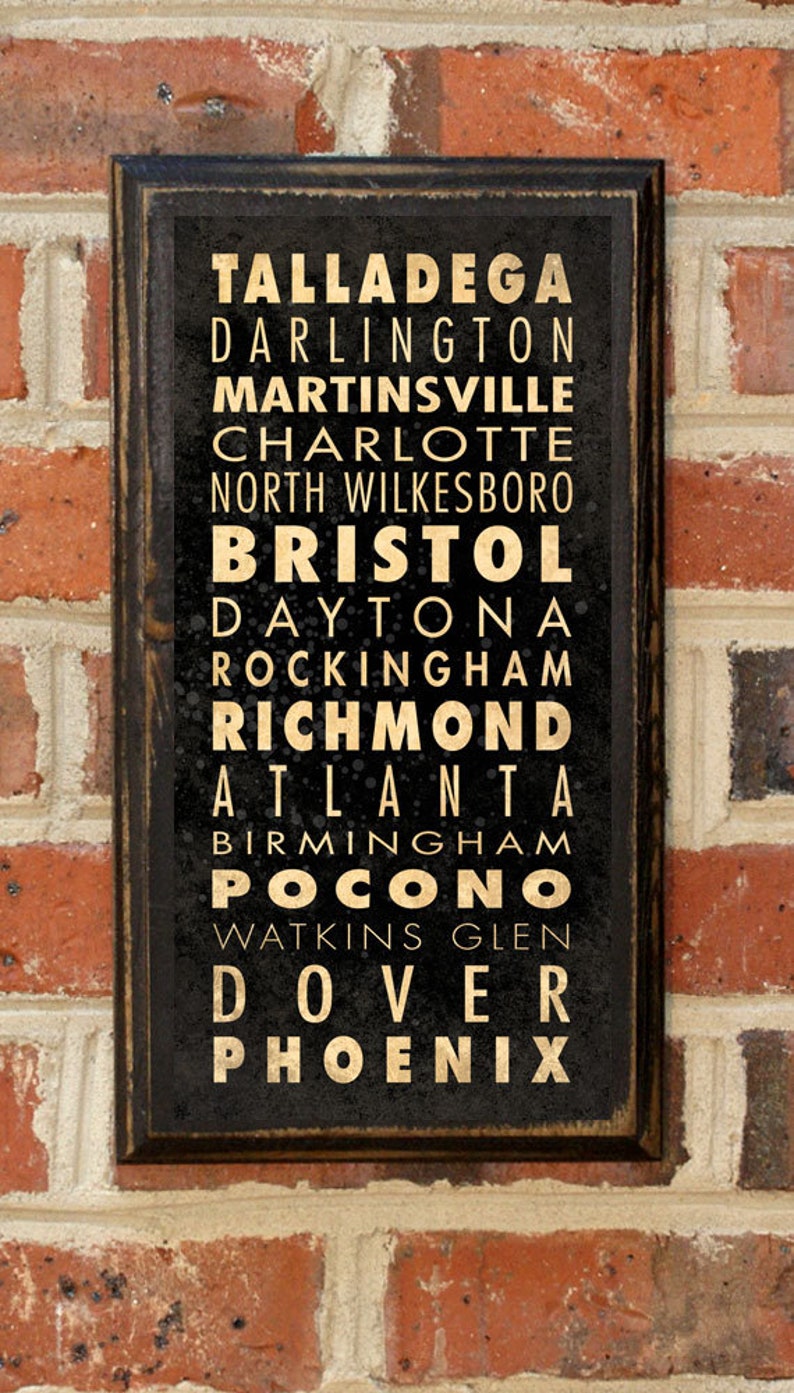 TALLADEGA
DARLINGTON
MARTINSVILLE
CHARLOTTE
NORTH WILKESBORO
BRISTOL
DAYTONA
ROCKINGHAM
RICHMOND
ATLANTA
BIRMINGHAM
POCONO
WATKINS GLEN
DOVER
PHOENIX